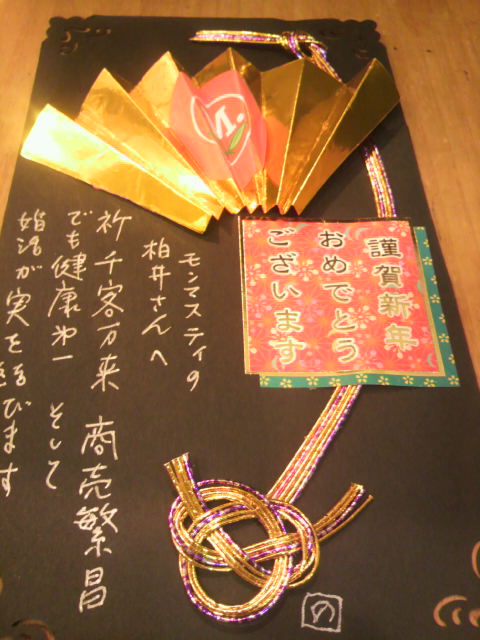 謹賀新年
おめでとう
ございます
モンマスティの
柏井さんへ
祈千客万来 商売繁昌
でも健康第一 そして
婚活が実を結びます
M.
の